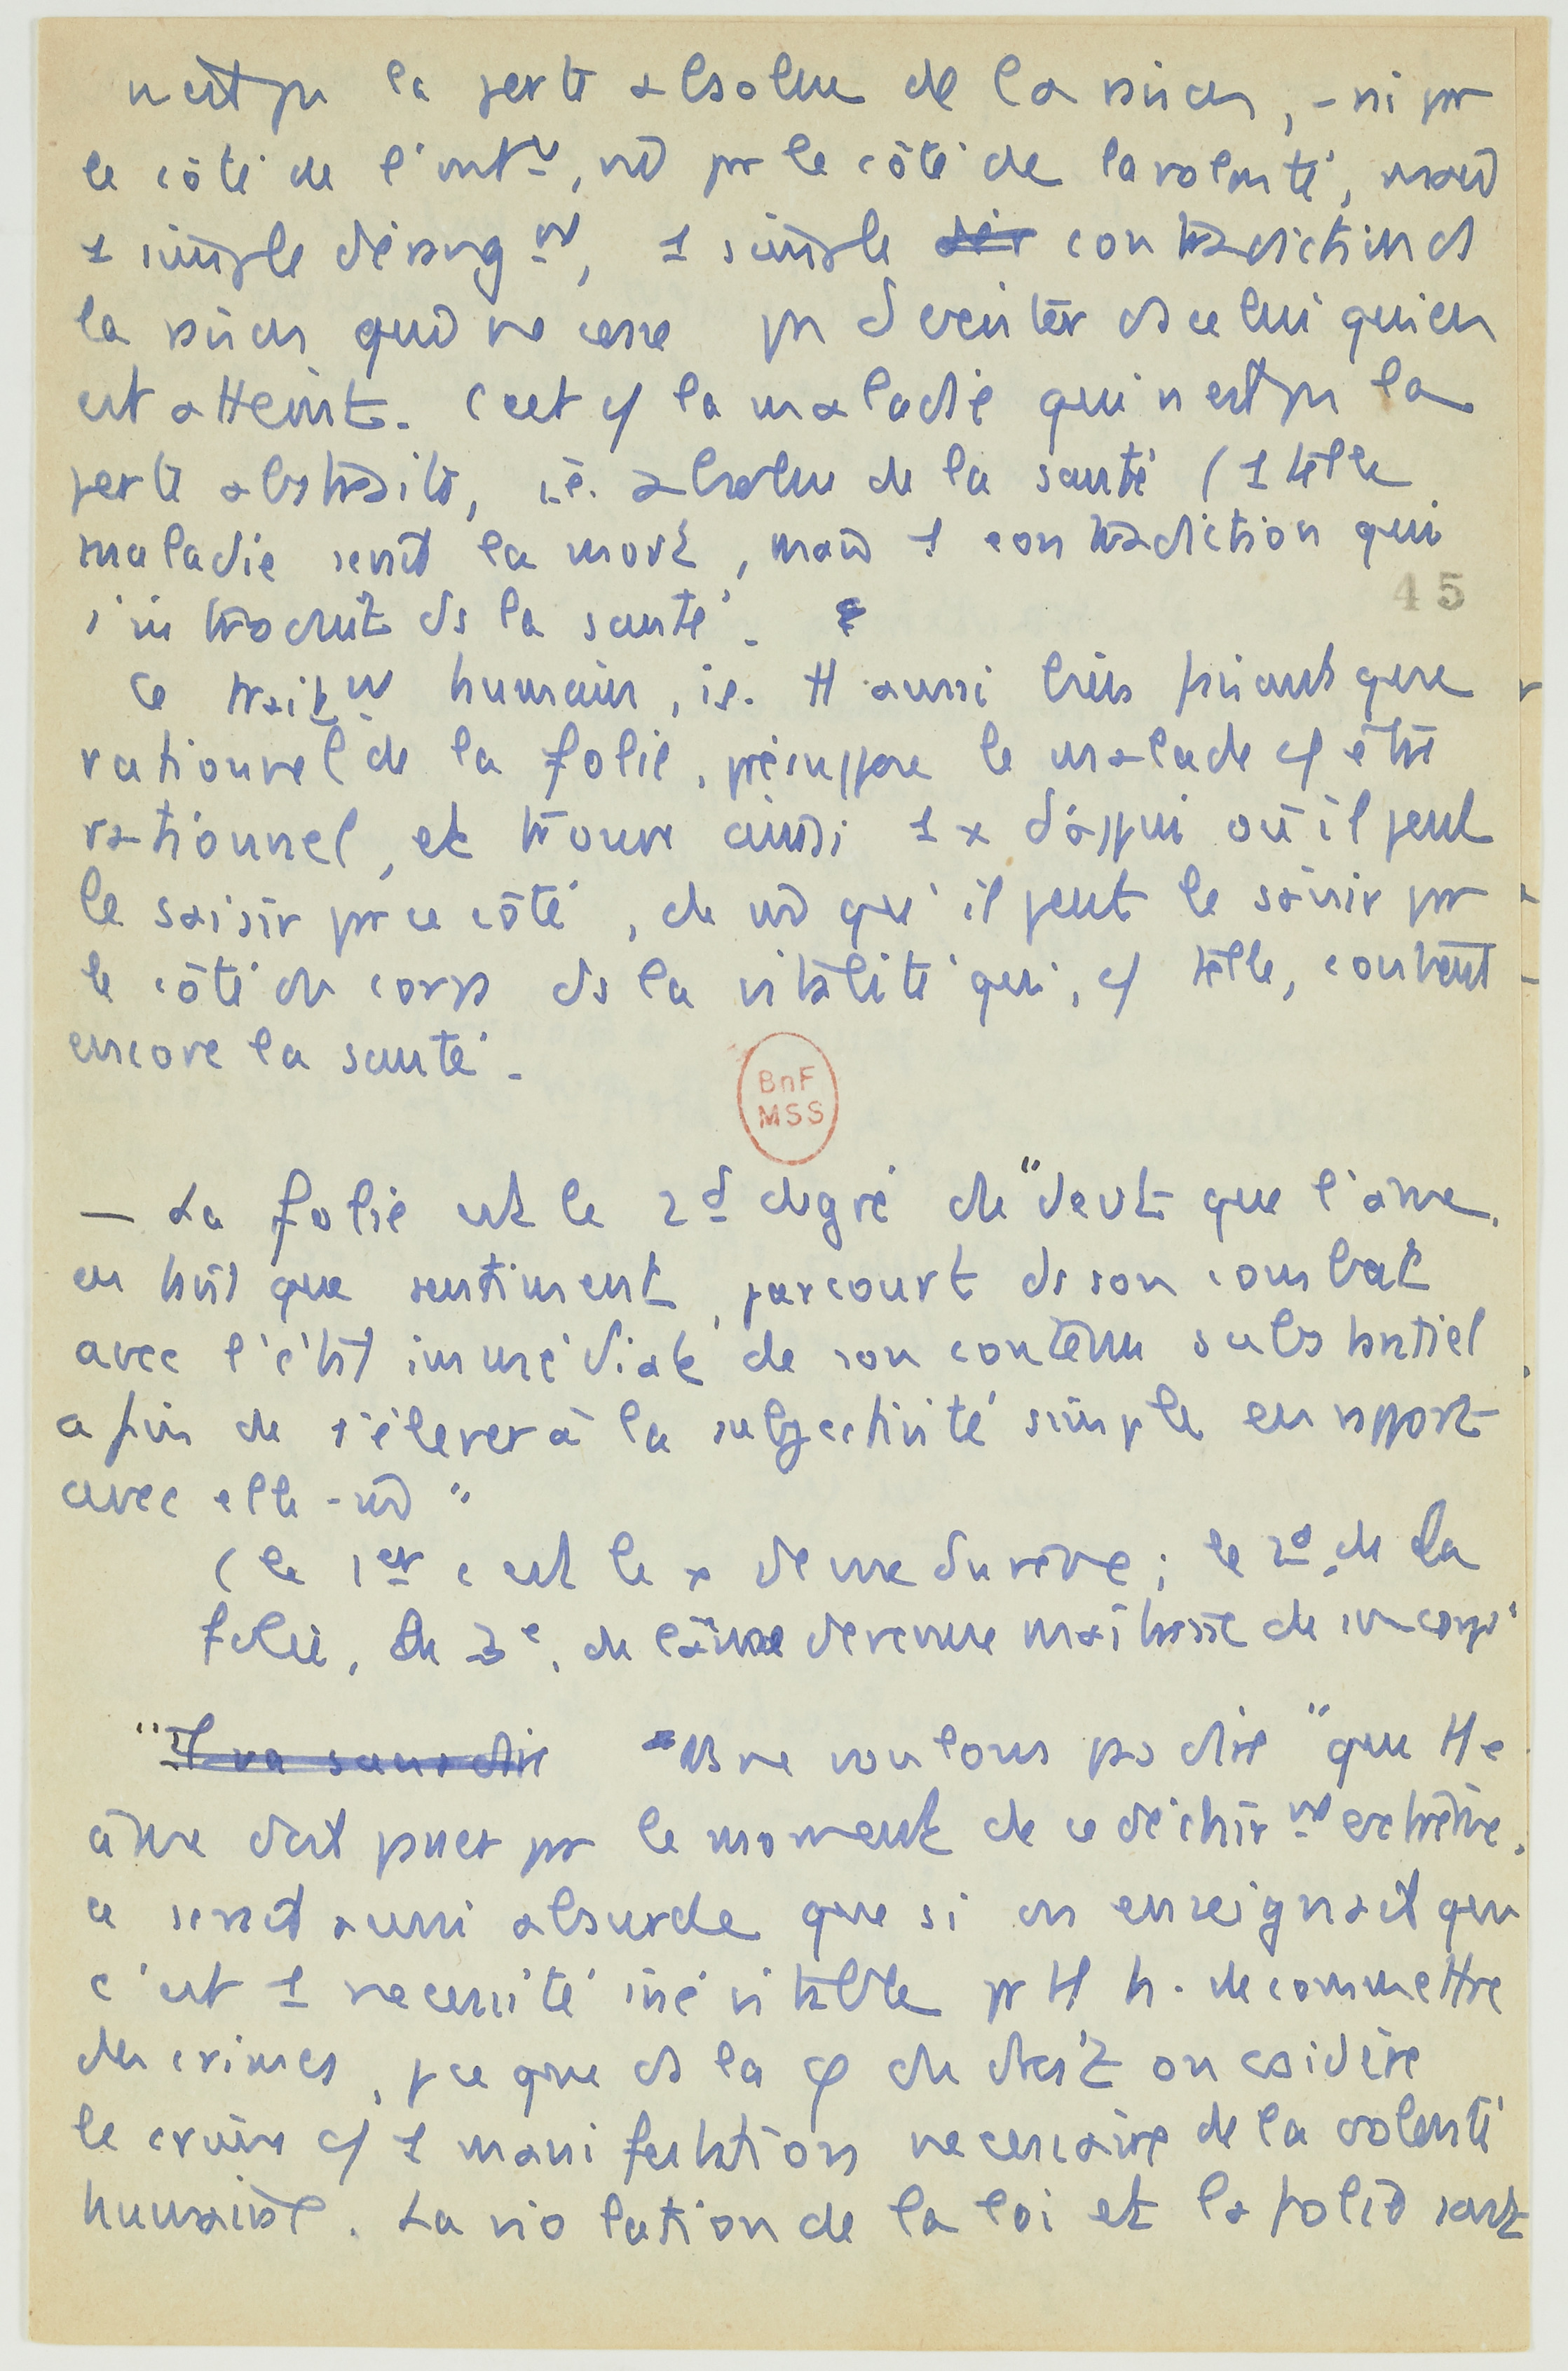 n'est pas la perte absolue de la raison, - ni par
le côté de l'int<sup>ce</sup>, ni par le côté de la volonté, mais
1 simple dérang<sup>nt</sup>, 1 simple contradiction ds
la raison qui ne cesse pas d'exister ds celui qui en
est atteint. C'est c/ la maladie qui n'est pas la
perte abstraite, i.e. absolue de la santé (1 telle
maladie serait la mort, mais 1 contradiction qui
s'introduit ds la santé.
45
Ce trait<sup>nt</sup> humain, i.e. tt aussi bienfaisant que
rationnel de la folie, présuppose le malade c/ être
rationnel, et trouve ainsi 1 x d'appui où il peut
le saisir par ce côté, de mê qu'il peut le saisir par
le côté du corps ds la vitalité qui, c/ telle, contient
encore la santé.
BnF
MSS
— La folie est le 2<sup>d</sup> degré de "devt que l'âme,
en tant que sentiment, parcourt ds son combat
avec l'état immédiat de son contenu substantiel
afin de s'élever à la subjectivité simple en rapport
avec elle-mê"
(le 1<sup>er</sup> c'est le x de me du rêve ; le 2<sup>d</sup>, de la
folie, le 3<sup>e</sup>, de l'âme devenue maîtresse de son corps
"Il va sans dire ns ne voulons pas dire "que tte
âme doit passer par le moment de ce déchir<sup>nt</sup> extrême.
ce serait aussi absurde que si on enseignait que
c'est 1 nécessité inévitable pr tt h. de commettre
des crimes, pce que ds la φ du droit on considère
le crime c/ 1 manifestation nécessaire de la volonté
humaine. La violation de la loi et la folie sont